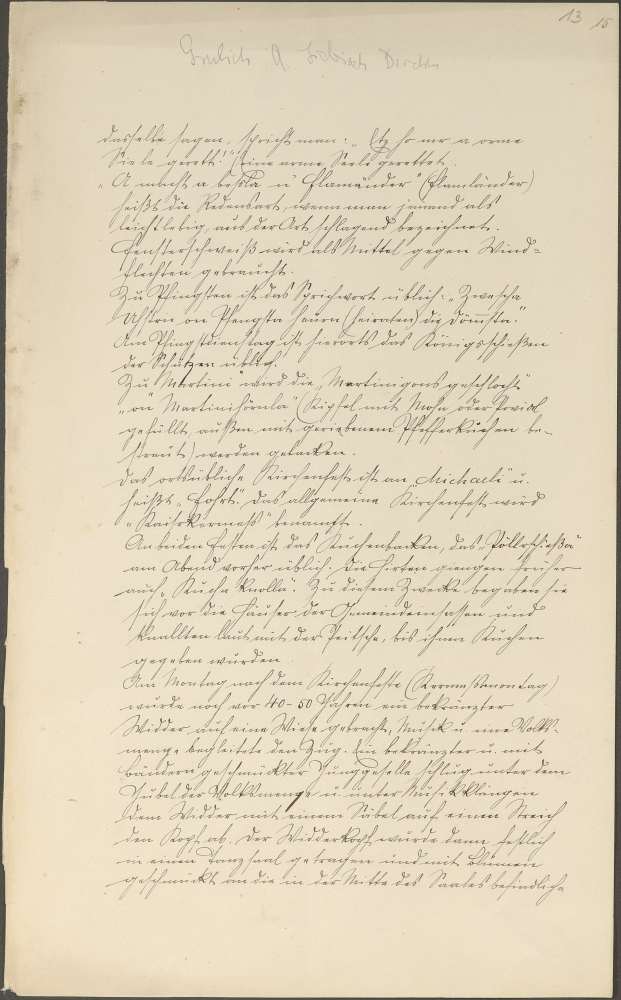 13 15
dasselbe sagen, spricht man: „Etz ho mr a orme
Seele gerett!" (eine arme Seele gerettet.
„A macht a besola u Flamänder" (Flamländer)
heißt die Redensart, wenn man jemand als
leichtlebig, aus der Art schlagend bezeichnet.
Fensterschweiß wird als Mittel gegen Wind-
flechten gebraucht.
Zu Pfingsten ist das Sprichwort üblich: „Zwescha
Ustern on Pfengsta heurn (heiraten) die Dömmsta."
Am Pfingstdienstag ist hierorts das Königsschießen
der Schützen üblich.
Zu „Martini" wird die „Martinigons geschlocht"
„on Martinihörnla" (Kipfel mit Mohn oder Powidl
gefüllt, außen mit geriebenem Pfefferkuchen be-
streut) werden gebacken.
Das ortsübliche Kirchenfest ist an „Michaeli" u.
heißt „Fohrt". Das allgemeine Kirchenfest wird
„Kaiserkermeß" benamst.
An beiden Festen ist das Kuchenbacken, das „Pöllrschießa"
am Abend vorher üblich. Die Hirten giengen früher
auch „Kucha knolla". Zu diesem Zwecke begaben sie
sich vor die Häuser der Gemeindeinsassen und
knallten laut mit der Peitsche, bis ihnen Kuchen
gegeben wurden.
Am Montag nach dem Kirchenfeste (Kermesmontag)
wurde noch vor 40-50 Jahren ein bekränzter
Widder auf eine Wiese gebracht, Musik u. eine Volks-
menge begleitete den Zug. Ein bekränzter u. mit
Bändern geschmückter Junggeselle schlug unter dem
Jubel der Volksmenge u. unter Musikklängen
dem Widder mit einem Säbel auf einen Streich
den Kopf ab. Der Widderkopf wurde dann festlich
in einen Tanzsaal getragen und mit Blumen
geschmückt an die in der Mitte des Saales befindliche